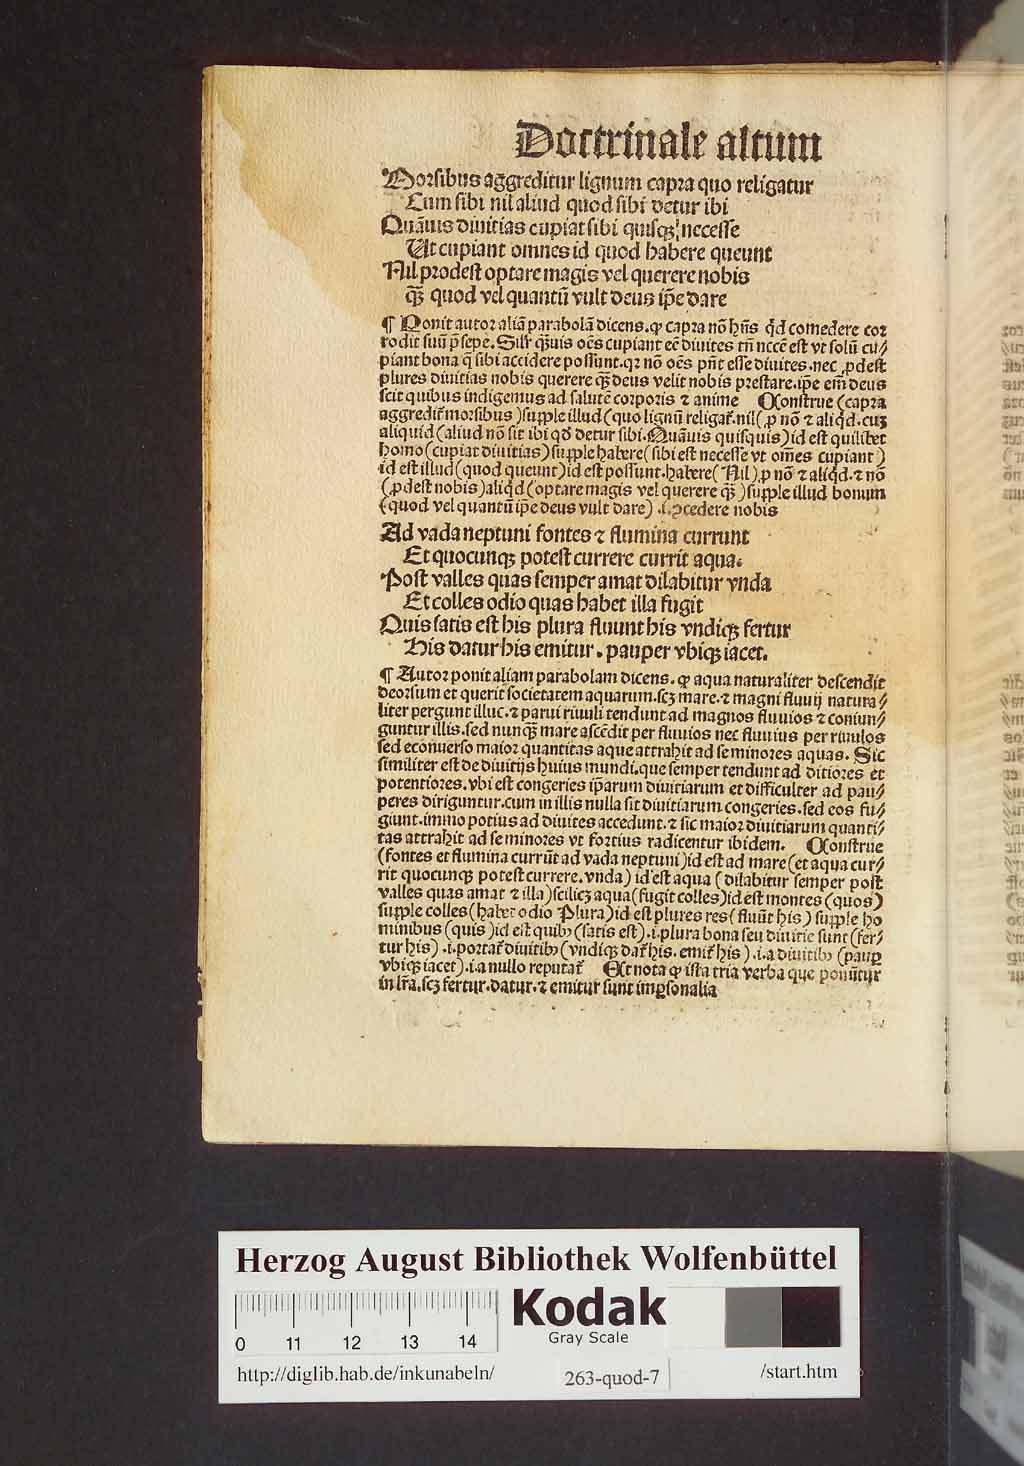 Doctrinale altum
Morsibus aggreditur lignum capra quo religatur
Cum sibi nil aliud quod sibi detur ibi
Quãuis diuitias cupiat sibi quisqꝫ necesse
Ut cupiant omnes id quod habere queunt
Nil prodest optare magis vel querere nobis
q̃ꝫ quod vel quantũ vult deus ip̃e dare
¶ Ponit autor aliã parabolã dicens. ꝙ capra nõ hñs qͥd comedere cor
rodit suũ p̃sepe. Silꝛ q̃ꝫuis oẽs cupiant eẽ diuites tñ nccẽ est vt solũ cu⸗
piant bona q̃ sibi accidere possunt. qꝛ nõ oẽs pñt esse diuites. nec ꝓdest
plures diuitias nobis querere q̃ꝫ deus velit nobis prestare. ip̃e em̃ deus
scit quibus indigemus ad salutẽ corporis ⁊ anime Construe (capra
aggredit᷑ morsibus) supple illud (quo lignũ religat᷑. nil) ꝓ nõ ⁊ aliqͥd. cuꝫ
aliquid (aliud nõ sit ibi qđ detur sibi. Quãuis quisquis) id est quilibet
homo (cupiat diuitias) supple habere (sibi est necesse vt om̃es cupiant)
id est illud (quod queunt) id est possunt. habere (Nil) ꝓ nõ ⁊ aliqͥd. ⁊ nõ
(ꝓdest nobis) aliqͥd (optare magis vel querere q̃ꝫ) supple illud bonum
(quod vel quantũ ip̃e deus vult dare) .i. ꝯcedere nobis
Ad vada neptuni fontes ⁊ flumina currunt
Et quocunqꝫ potest currere currit aqua.
Post valles quas semper amat dilabitur vnda
Et colles odio quas habet illa fugit
Quis satis est his plura fluunt his vndiqꝫ fertur
His datur his emitur. pauper vbiqꝫ iacet.
¶ Autor ponit aliam parabolam dicens. ꝙ aqua naturaliter descendit
deorsum et querit societatem aquarum. scꝫ mare. ⁊ magni fluuij natura⸗
liter pergunt illuc. ⁊ parui riuuli tendunt ad magnos fluuios ⁊ coniun⸗
guntur illis. sed nunqꝫ̃ mare ascẽdit per fluuios nec fluuius per riuulos
sed econuerso maior quantitas aque attrahit ad se minores aquas. Sic
similiter est de diuitijs huius mundi. que semper tendunt ad ditiores et
potentiores. vbi est congeries ip̃arum diuitiarum et difficulter ad pau⸗
peres diriguntur. cum in illis nulla sit diuitiarum congeries. sed eos fu⸗
giunt. immo potius ad diuites accedunt. ⁊ sic maior diuitiarum quanti⸗
tas attrahit ad se minores vt fortius radicentur ibidem. Construe
(fontes et flumina currũt ad vada neptuni) id est ad mare (et aqua cur⸗
rit quocunqꝫ potest currere. vnda) id est aqua (dilabitur semper post
valles quas amat ⁊ illa) scilicꝫ aqua (fugit colles) id est montes (quos)
supple colles (habet odio Plura) id est plures res (fluũt his) supple ho
minibus (quis) id est quibꝰ (satis est) .i. plura bona seu diuitie sunt (fer⸗
tur his) .i. portat᷑ diuitibꝰ (vndiqꝫ dat᷑ his. emit᷑ his) .i. a diuitibꝰ (paupꝑ
vbiqꝫ iacet) .i. a nullo reputat᷑ Et nota ꝙ ista tria verba que ponũtur
in lr̃a. scꝫ fertur. datur. ⁊ emitur sunt imꝑsonalia
Herzog August Bibliothek Wolfenbüttel
0 11 12 13 14
Kodak
Gray Scale
http://diglib.hab.de/inkunabeln/
263-quod-7
/start.htm